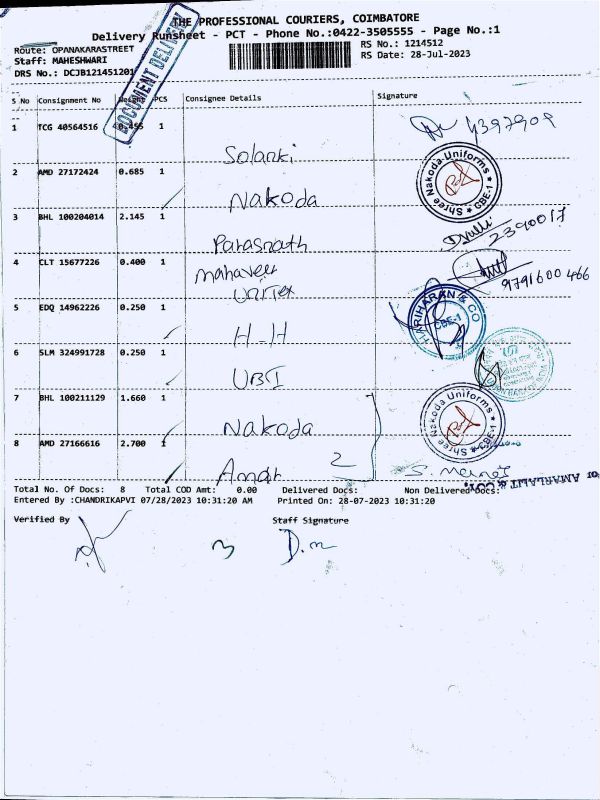 THE PROFESSIONAL COURIERS, COIMBATORE
Delivery Runsheet - PCT - Phone No.:0422-3505555 - Page No.:1
Route: OPANAKARASTREET
RS No.: 1214512
Staff: MAHESHWARI
RS Date: 28-Jul-2023
DRS No.: DCJB121451201
DOCUMENT DELIVERY
S No Consignment No Weight PCS Consignee Details Signature
1 TCG 40564516 0.455 1 Solanki 4397909
2 AMD 27172424 0.685 1 Nakoda
Shree Nakoda Uniforms * CBE-1 *
3 BHL 100204014 2.145 1 Parasnath 2390017
4 CLT 15677226 0.400 1 Mahaveer
9791600466
5 EDQ 14962226 0.250 1 H-H
HARIHARAN & CO
CBE-1
6 SLM 324991728 0.250 1 UBI
7 BHL 100211129 1.660 1 Nakoda
Shree Nakoda Uniforms * CBE-1 *
8 AMD 27166616 2.700 1 Amar 2
For AMARLALIT & COY.
Total No. Of Docs: 8 Total COD Amt: 0.00 Delivered Docs: Non Delivered Docs:
Entered By :CHANDRIKAPVI 07/28/2023 10:31:20 AM Printed On: 28-07-2023 10:31:20
Verified By Staff Signature
3